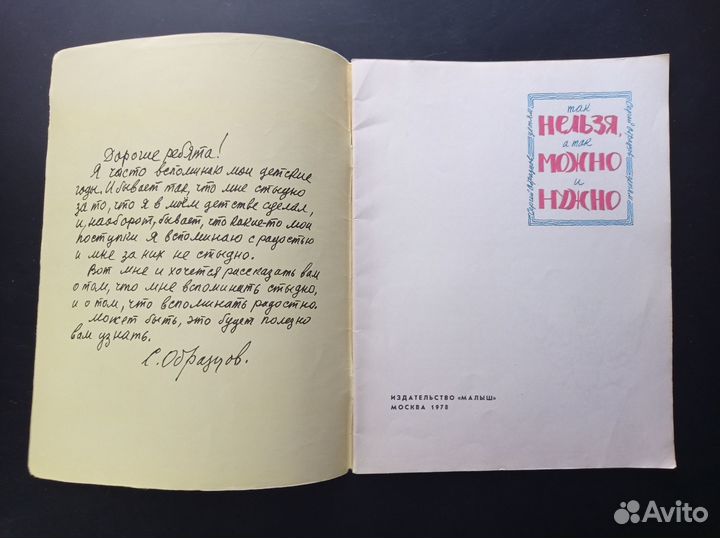 Дорогие ребята!
Я часто вспоминаю мои детские
годы. И бывает так, что мне стыдно
за то, что я в моём детстве сделал,
и, наоборот, бывает, что какие-то мои
поступки я вспоминаю с радостью
и мне за них не стыдно.
Вот мне и хочется рассказать вам
о том, что мне вспоминать стыдно,
и о том, что вспоминать радостно.
Может быть, это будет полезно
вам узнать.
С. Образцов.
так
нельзя,
а так
можно
и
нужно
ИЗДАТЕЛЬСТВО «МАЛЫШ»
МОСКВА 1978
Avito